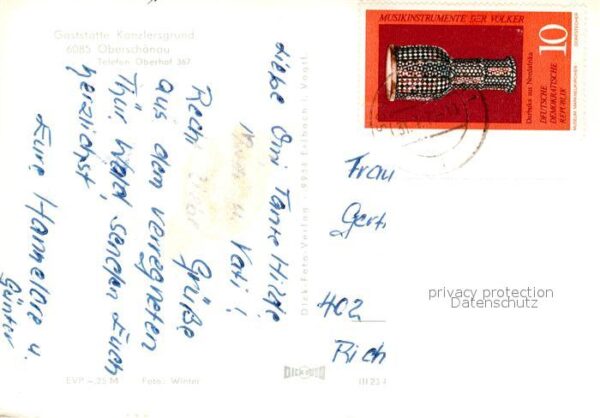 Gaststätte Kanzlersgrund
6085 Oberschönau
Telefon Oberhof 367
Liebe Omi, Tante Hilde,
Vati!
Recht Grüße
aus dem verregneten
Thür. Wald senden Euch
herzlichst
Eure Hannelore u.
Günter
EVP -,25 M Foto: Winter
Dick-Foto-Verlag · 9931 Erlbach i. Vogtl.
DICK FOTO
III 23
MUSIKINSTRUMENTE DER VÖLKER
10
Darbuka aus Nordafrika
DEUTSCHE
DEMOKRATISCHE
REPUBLIK
MUSEUM MARKNEUKIRCHEN
Frau
Gert
402
Rich
privacy protection
Datenschutz